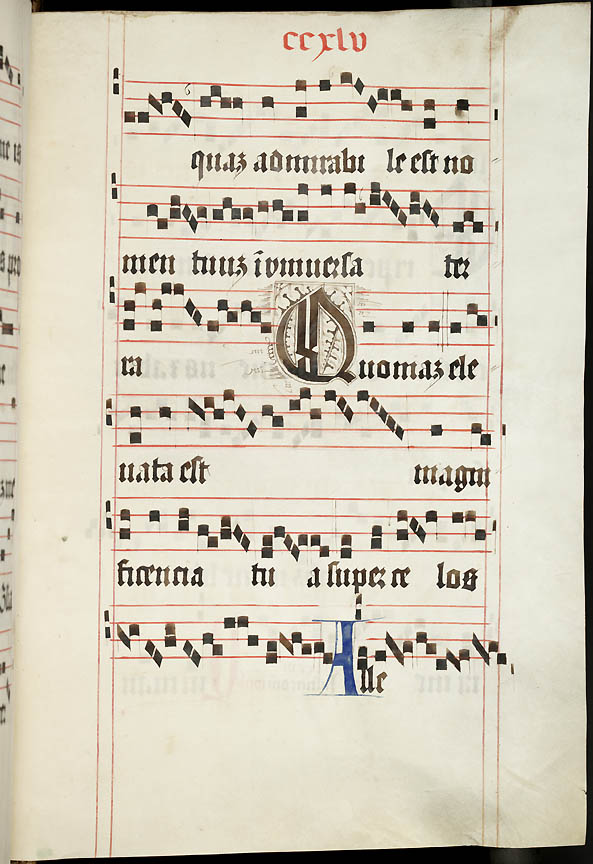 ccxlv
quaz admirabi le est no
men tuuz ī vniuersa ter
ra Quoniaz ele
uata est magni
ficencia tu a super ce los
Alle